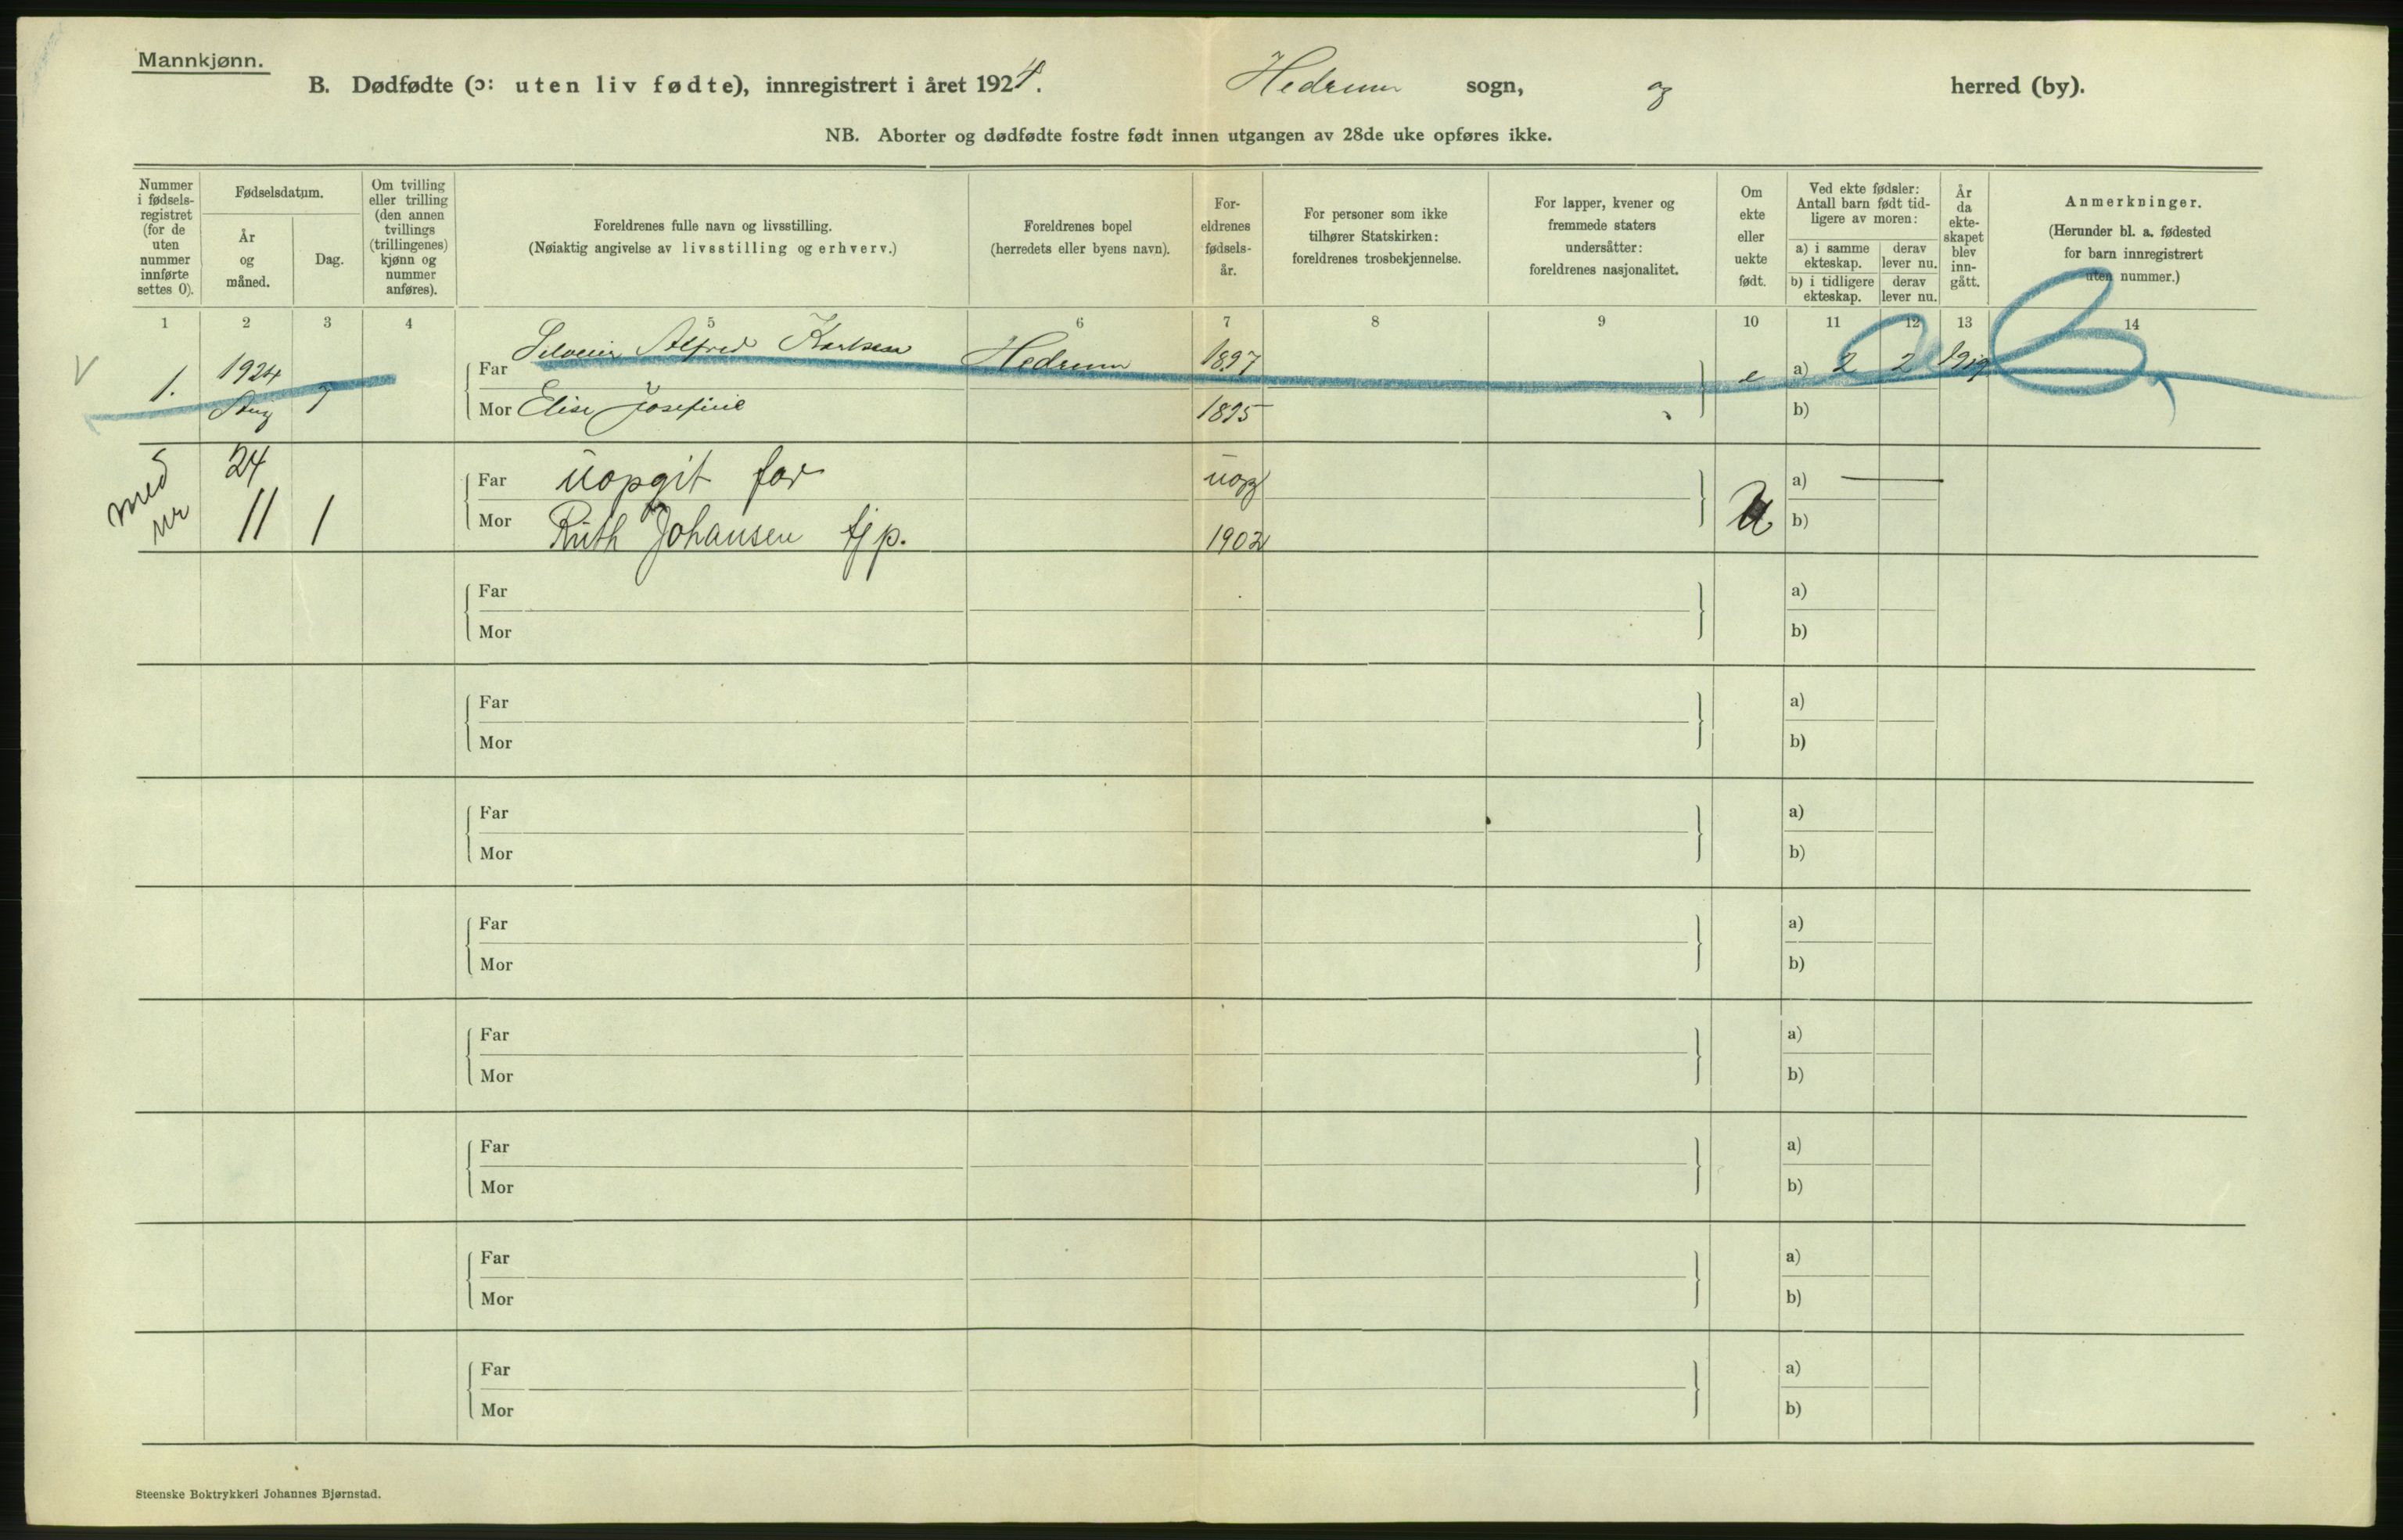 Mannkjønn.
B. Dødfødte (ɔ: uten liv fødte), innregistrert i året 1924. Hedrum sogn, og herred (by).
NB. Aborter og dødfødte fostre født innen utgangen av 28de uke opføres ikke.
Nummer i fødsels- registret (for de uten nummer innførte settes 0).
Fødselsdatum.
År og måned.
Dag.
Om tvilling eller trilling (den annen tvillings (trillingenes) kjønn og nummer anføres).
Foreldrenes fulle navn og livsstilling.
(Nøiaktig angivelse av livsstilling og erhverv.)
Foreldrenes bopel
(herredets eller byens navn).
For- eldrenes fødsels- år.
For personer som ikke tilhører Statskirken: foreldrenes trosbekjennelse.
For lapper, kvener og fremmede staters undersåtter: foreldrenes nasjonalitet.
Om ekte eller uekte født.
Ved ekte fødsler: Antall barn født tid- ligere av moren:
a) i samme ekteskap. derav lever nu.
b) i tidligere ekteskap. derav lever nu.
År da ekte- skapet blev inn- gått.
Anmerkninger.
(Herunder bl. a. fødested for barn innregistrert uten nummer.)
1 2 3 4 5 6 7 8 9 10 11 12 13 14
1. 1924 Aug 7 Far Alfred Karlsen Hedrum 1897 e a) 2 2 1919
Mor Elise Josefine 1895 b)
med nr 24 11 1 Far uopgit far uopg U a) —
Mor Ruth Johansen tjp. 1902 b)
Far a)
Mor b)
Far a)
Mor b)
Far a)
Mor b)
Far a)
Mor b)
Far a)
Mor b)
Far a)
Mor b)
Far a)
Mor b)
Far a)
Mor b)
Steenske Boktrykkeri Johannes Bjørnstad.